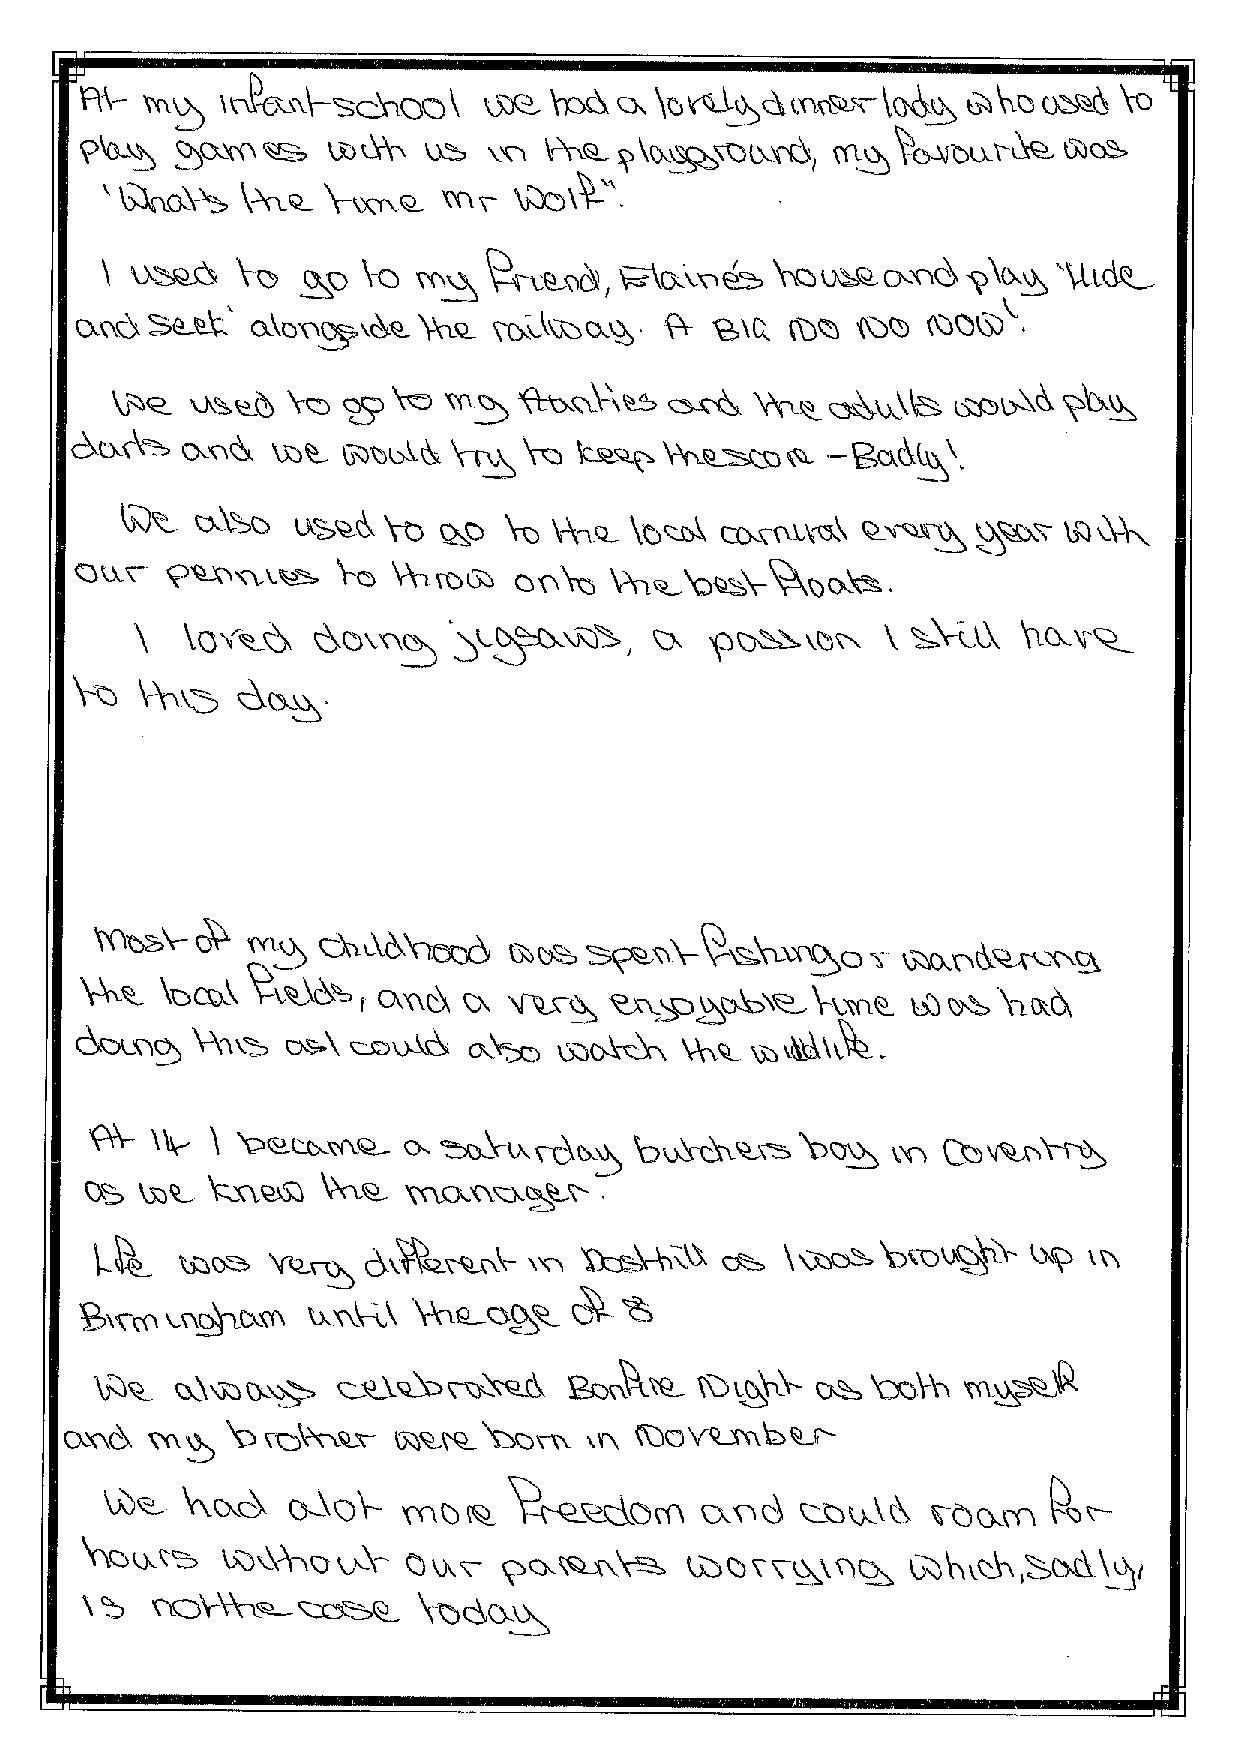 At my infant school we had a lovely dinner lady who used to
play games with us in the playground, my favourite was
'What's the time mr Wolf".
I used to go to my friend, Elaine's house and play 'Hide
and Seek' alongside the railway. A BIG NO NO NOW!.
We used to go to my Aunties and the adults would play
darts and we would try to keep the score - Badly!
We also used to go to the local carnival every year with
our pennies to throw onto the best floats.
I loved doing jigsaws, a passion I still have
to this day.
Most of my childhood was spent fishing or wandering
the local fields, and a very enjoyable time was had
doing this as I could also watch the wildlife.
At 14 I became a saturday butchers boy in Coventry
as we knew the manager.
Life was very different in Dosthill as I was brought up in
Birmingham until the age of 8
We always celebrated Bonfire Night as both myself
and my brother were born in November
We had a lot more freedom and could roam for
hours without our parents worrying which, sadly,
is not the case today